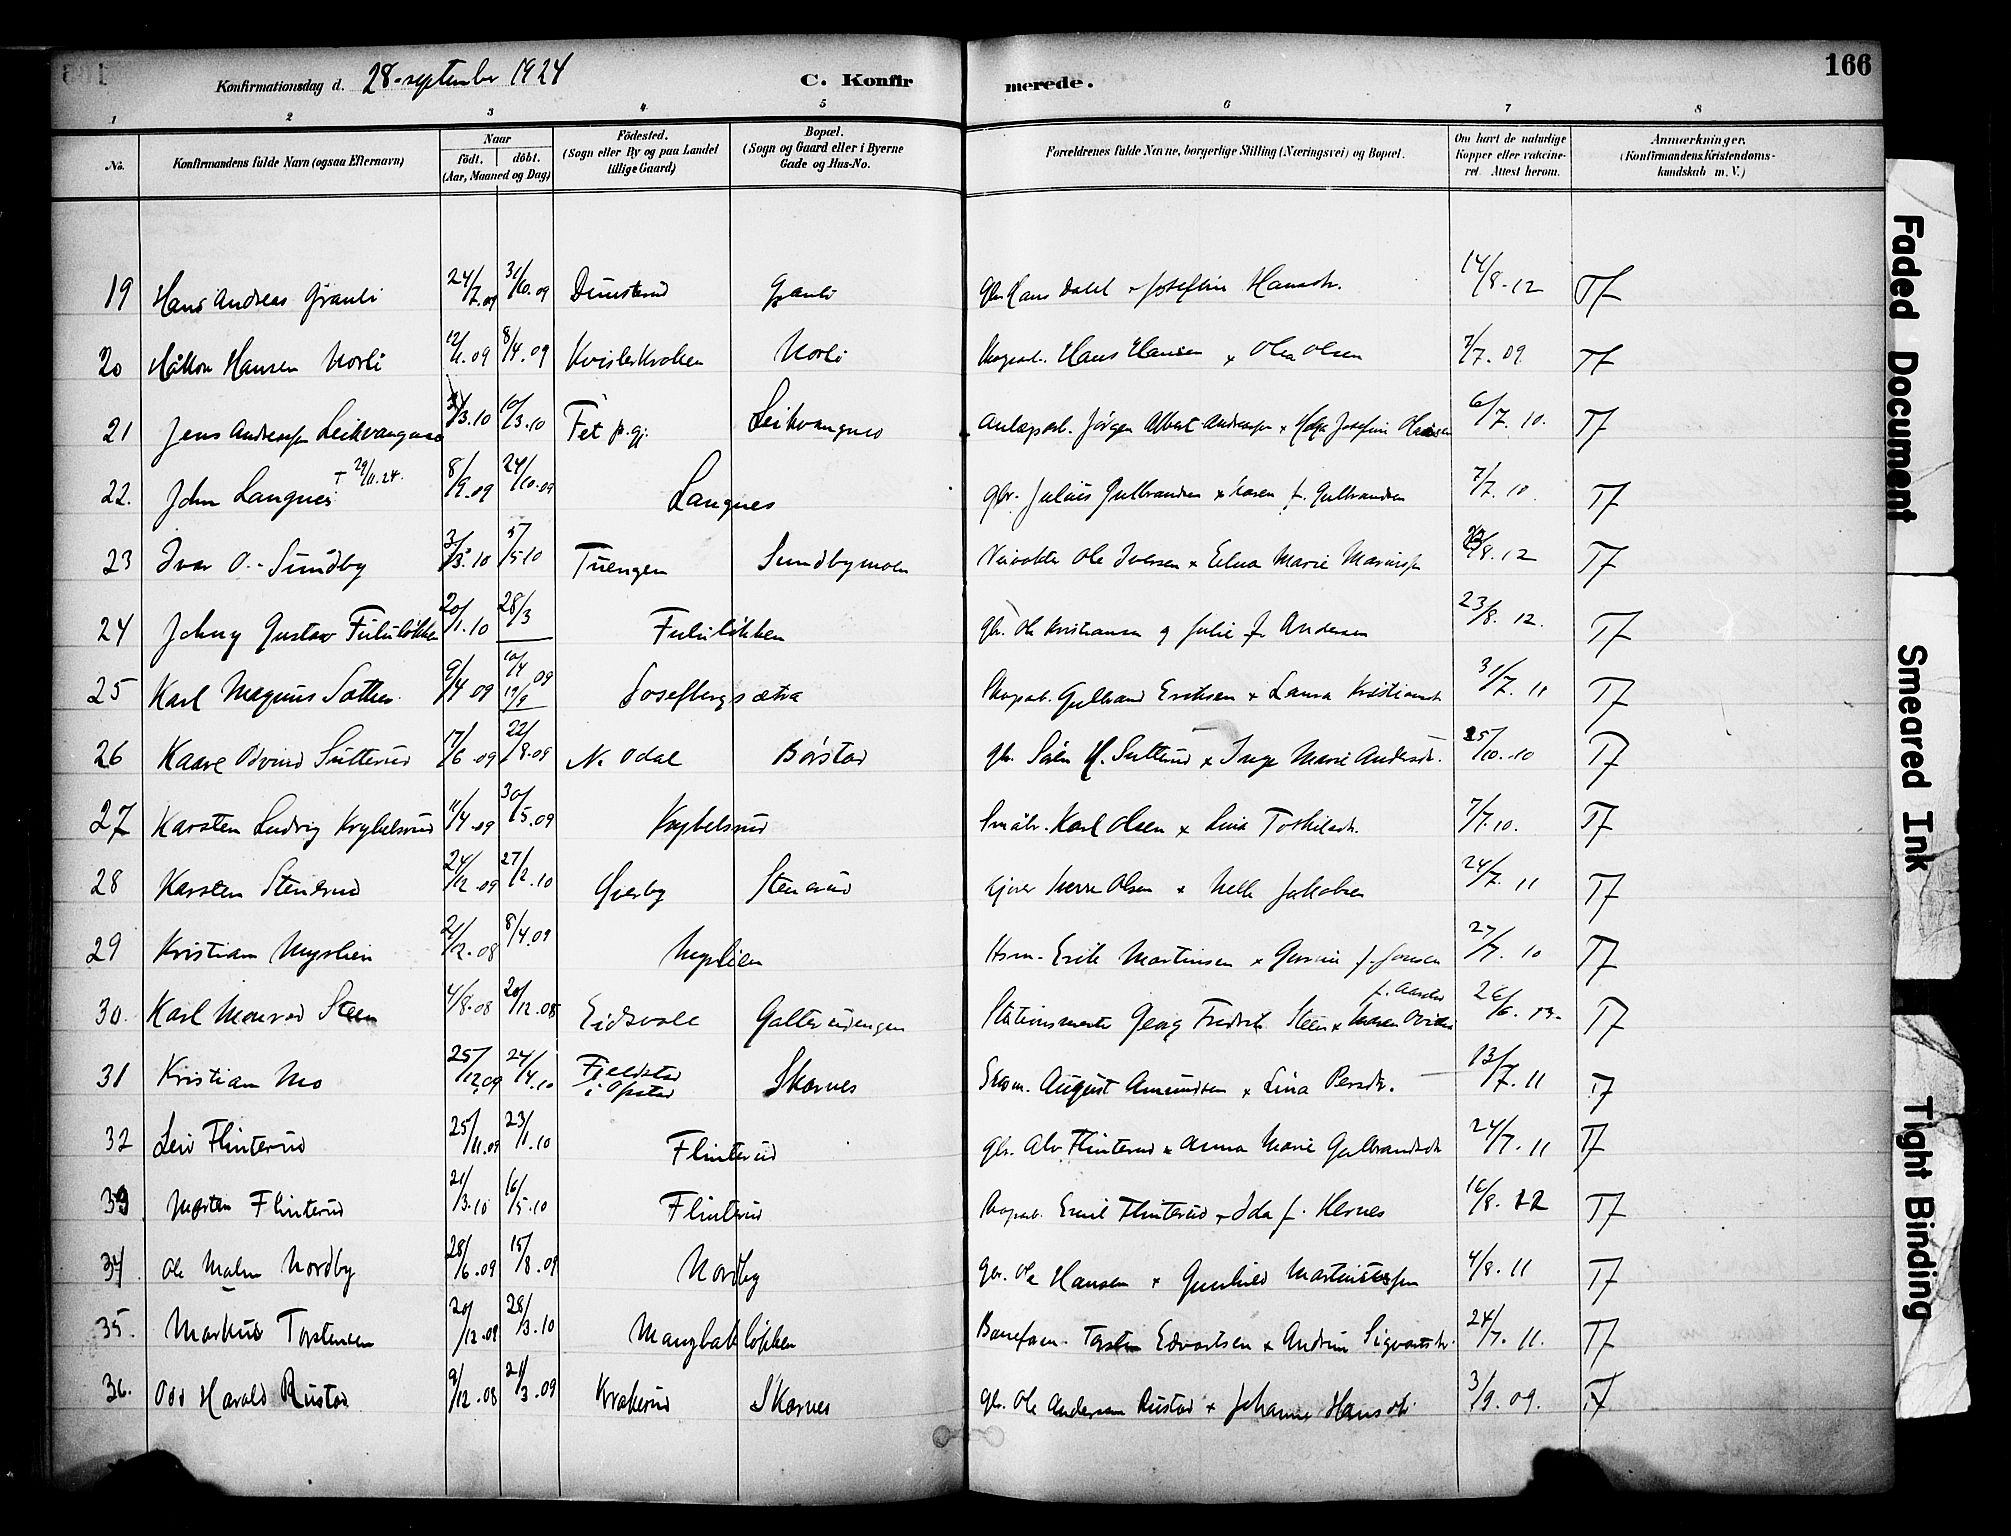 Konfirmationsdag d. 28. september 1924
C. Konfirmerede.
166
1 2 3 4 5 6 7 8
No. Konfirmandens fulde Navn (ogsaa Efternavn) Naar födt. döbt. (Aar, Maaned og Dag) Födested. (Sogn eller By og paa Landet tillige Gaard) Bopæl. (Sogn og Gaard eller i Byerne Gade og Hus-No. Forældrenes fulde Navne, borgerlige Stilling (Næringsvei) og Bopæl. Om havt de naturlige Kopper eller vakcineret. Attest herom. Anmærkninger. (Konfirmandens Kristendomskundskab m. V.)
19 Hans Andreas Granli 24/7.09 31/10.09 Granli Gbr. Hans Josefine Hansdtr. 14/8-12 Tf
20 Håkon Hansen Norli 8/4.09 Norli Hans Hansen x Olea Olsen 7/7.09 Tf
21 Jens Andreassen Leikvangmo 10/3.10 Fet p.gj. Leikvangmo Anlægsarb. Jörgen Albert Andreassen x Josefine Hansen 6/7.10. Tf
22. John Langnes † 29/11.24. 8/9.09 24/10.09 Langnes gbr. Julius Gulbrandsen x Karen f. Gulbrandsen 7/7.10. Tf
23 Ivar O. Sundby 3/3.10 5/5 10 Tuengen Sundbymoen Veivokter Ole Iversen x Marie 8.12 Tf
24 Johny Gustav 20/1.10 28/3 gbr. Ole Kristiansen og Julie f. Andersen 23/8.12. Tf
25 Karl Magnus 9/4 09 10/4 09 19/9 Josefbergsætra Gulbrand Eriksen x Laura Kristiansdtr 31/7.11 Tf
26 Kaare Odvind Sutterud 17/6.09 22/8.09 N. Odal Börstad gbr. Sören H. Sutterud x Inga Marie Andersdtr. 25/10.10 Tf
27 Karsten Ludvig Krybelsrud 11/4.09 30/5.09 Krybelsrud Småbr. Karl Olsen x Lina Torkilsdtr. 7/7.10. Tf
28 Karsten Stenerud 24/12.09 27/2.10 Överby Stenerud Olsen x Jakobsen 24/7.11 Tf
29 Kristian Myrlien 21/12.08 8/4.09 Myrlien Hsm. Erik Martinsen x f. Jonsen 27/7.10 Tf
30. Karl Monrad Steen 4/8.08 20/12.08 Eidsvold Galterudengen Stationsmester Georg Fredrik Steen x 26/6. Tf
31 Kristian Mo 25/12.09 24/4.10 Fjeldstad i Opstad Skarnes August Amundsen x Lina Persdtr. 13/7.11 Tf
32 Leiv Flinterud 25/11.09 23/1.10 Flinterud gbr. Alv Flinterud x Anna Marie Gulbrandsdtr 24/7.11 Tf
33 Morten Flinterud 21/3.10 16/5.10 Flinterud Emil Flinterud x Ida f. Hernes 16/8. Tf
34 Ole Malm Nordby 28/6.09 15/8.09 Nordby gbr. Ole Hansen x Gunhild 4/8.11 Tf
35. Markus Torstensen 20/12.09 28/3.10 Torsten Edvartsen x Andrine Sigvartsdtr. 24/7.11. Tf
36. Odd Harald Rustad 9/12.08 21/3.09 Krakerud Skarnes gbr. Ole Andersen Rustad x Johanne Hansdtr 3/9.09. Tf
Faded Document
Smeared Ink
Tight Binding